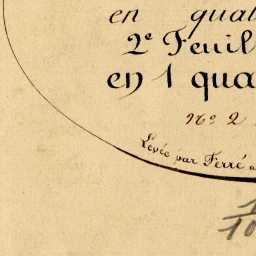 en quat
2e Feuil
en 1 qua
No 2
Levée par Ferré
1
10